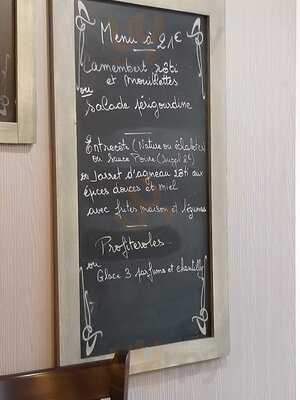 Menu à 21€
Camembert rôti
et Mouillettes
ou
Salade périgourdine
Entrecôte (Nature ou échalotes)
ou Sauce Poivre (suppl 2€)
ou Jarret d'agneau rôti aux
épices douces et miel
avec frites maison et légumes
Profiteroles
ou
Glace 3 parfums et chantilly